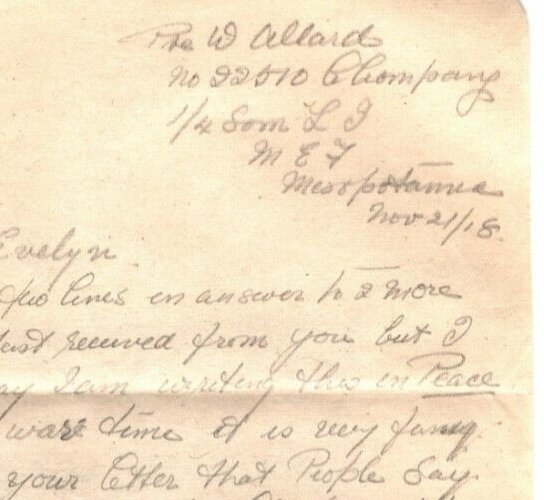 Pte W Allard
No 22510 C Company
1/4 Som L I
M E F
Mesopotamia
Nov 21/18.
Evelyn
two lines in answer to 2 more
Just received from you but I
ay I am writing this in Peace
ware time it is very funny
your letter that People Say